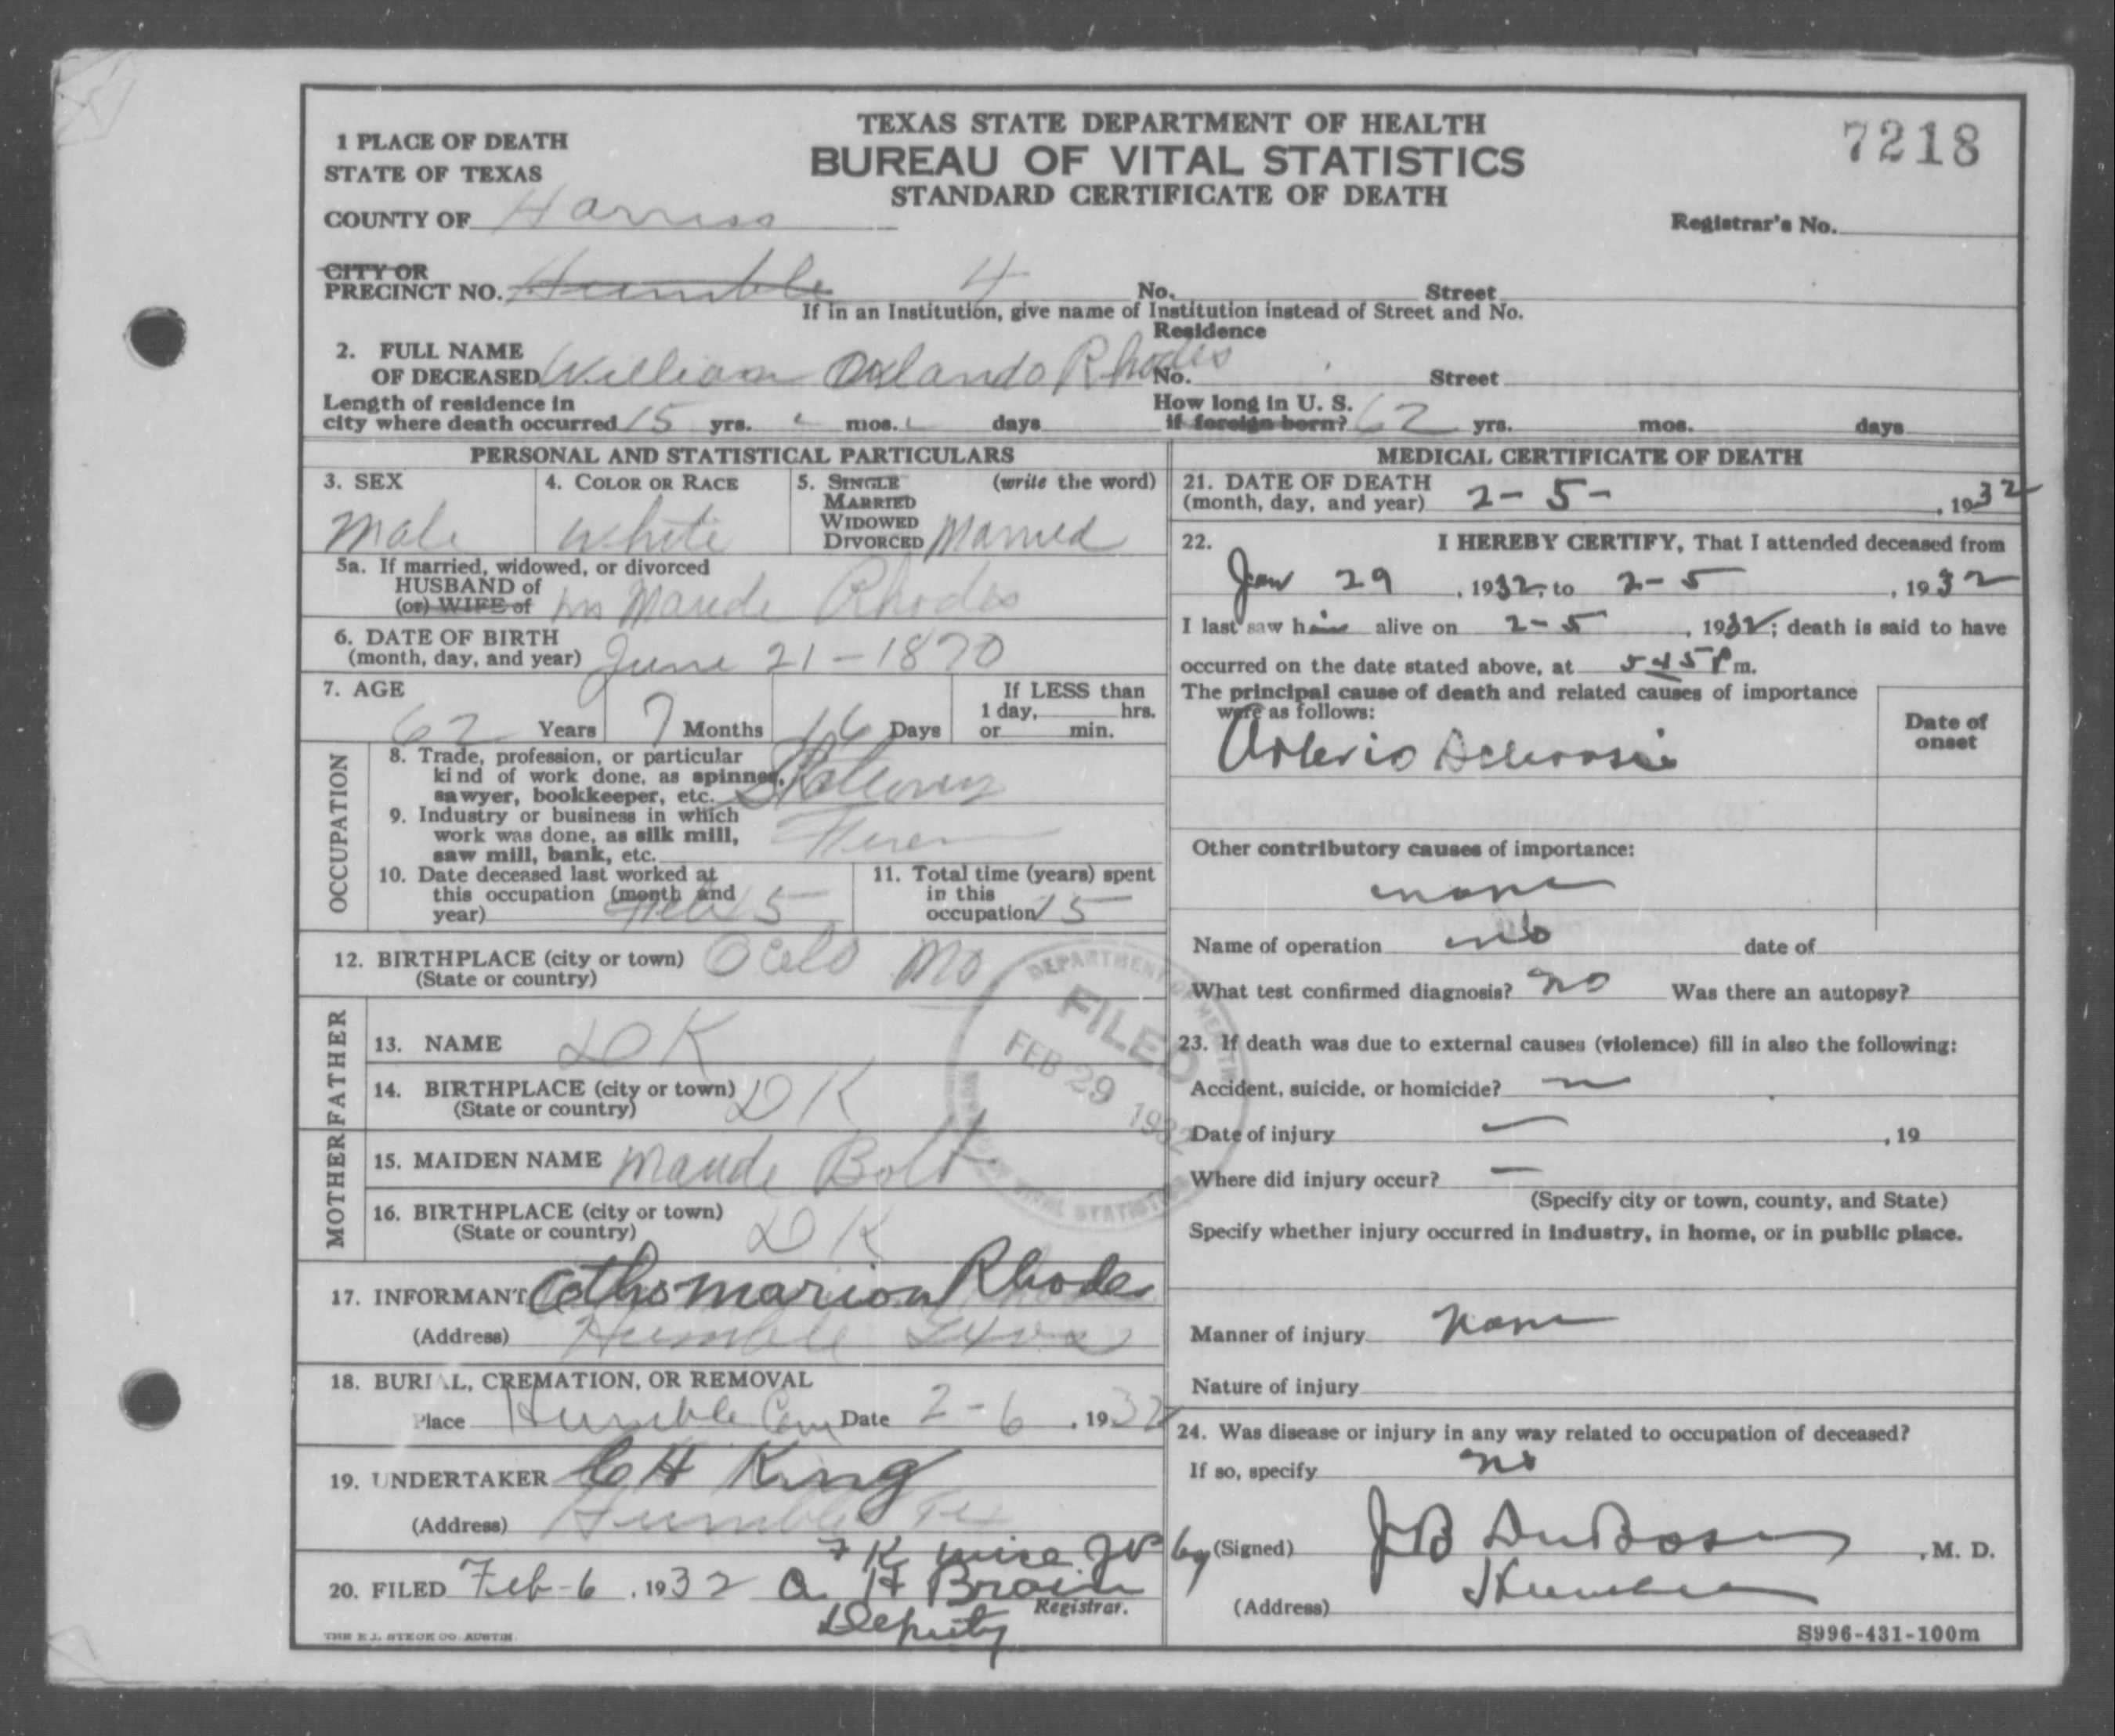 TEXAS STATE DEPARTMENT OF HEALTH
BUREAU OF VITAL STATISTICS
STANDARD CERTIFICATE OF DEATH
7218
1 PLACE OF DEATH
STATE OF TEXAS
COUNTY OF Harriss
Registrar's No.
CITY OR
PRECINCT NO. Humble 4 No. Street
If in an Institution, give name of Institution instead of Street and No.
Residence
2. FULL NAME
OF DECEASED William Orlando Rhodes No. Street
Length of residence in
city where death occurred 15 yrs. mos. days
How long in U. S.
if foreign born? 62 yrs. mos. days
PERSONAL AND STATISTICAL PARTICULARS
3. SEX
Male
4. COLOR OR RACE
White
5. SINGLE (write the word)
MARRIED
WIDOWED
DIVORCED Married
5a. If married, widowed, or divorced
HUSBAND of
(or) WIFE of Mrs Maude Rhodes
6. DATE OF BIRTH
(month, day, and year) June 21-1870
7. AGE
62 Years 7 Months 16 Days
If LESS than
1 day, hrs.
or min.
OCCUPATION
8. Trade, profession, or particular
kind of work done, as spinner,
sawyer, bookkeeper, etc.
9. Industry or business in which
work was done, as silk mill,
saw mill, bank, etc.
10. Date deceased last worked at
this occupation (month and
year) Feb 5
11. Total time (years) spent
in this
occupation 15
12. BIRTHPLACE (city or town) Mo
(State or country)
FATHER
13. NAME DK
14. BIRTHPLACE (city or town) DK
(State or country)
MOTHER
15. MAIDEN NAME Maude Bolt
16. BIRTHPLACE (city or town) DK
(State or country)
17. INFORMANT Marion Rhodes
(Address) Humble Texas
18. BURIAL, CREMATION, OR REMOVAL
Place Humble Cem Date 2-6, 1932
19. UNDERTAKER C H King
(Address) Humble Tex
F K Wise JP
20. FILED Feb-6, 1932 A H Brain
Registrar.
Deputy
THE E.L. STECK CO. AUSTIN.
DEPARTMENT OF HEALTH
FILED
FEB 29 1932
VITAL STATISTICS
MEDICAL CERTIFICATE OF DEATH
21. DATE OF DEATH
(month, day, and year) 2-5-, 1932
22. I HEREBY CERTIFY, That I attended deceased from
Jan 29, 1932, to 2-5, 1932
I last saw him alive on 2-5, 1932; death is said to have
occurred on the date stated above, at 545 P m.
The principal cause of death and related causes of importance
were as follows:
Date of
onset
Arterio Sclerosis
Other contributory causes of importance:
none
Name of operation no date of
What test confirmed diagnosis? no Was there an autopsy?
23. If death was due to external causes (violence) fill in also the following:
Accident, suicide, or homicide?
Date of injury —, 19
Where did injury occur? —
(Specify city or town, county, and State)
Specify whether injury occurred in industry, in home, or in public place.
Manner of injury None
Nature of injury
24. Was disease or injury in any way related to occupation of deceased?
If so, specify no
by (Signed) J B DuBose, M. D.
(Address) Humble
S996-431-100m